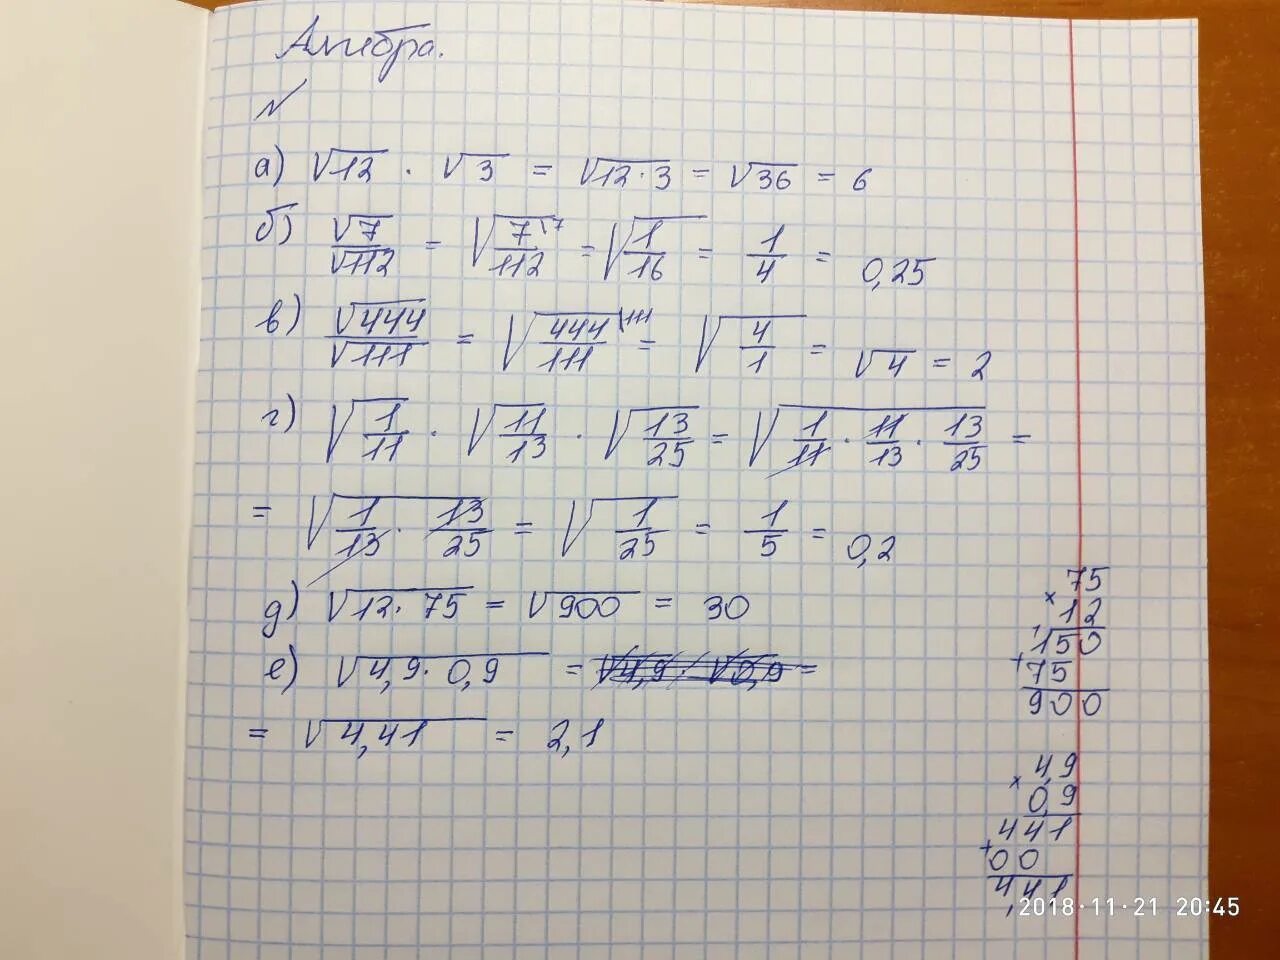 Алгебра.
N
а) √12 · √3 = √12·3 = √36 = 6
б) √7/√112 = √7/112 |7 = √1/16 = 1/4 = 0,25
в) √444/√111 = √444/111 |111 = √4/1 = √4 = 2
г) √1/11 · √11/13 · √13/25 = √1/11 · 11/13 · 13/25 =
= √1/13 · 13/25 = √1/25 = 1/5 = 0,2
д) √12·75 = √900 = 30
е) √4,9·0,9 = √4,9 · √0,9 =
= √4,41 = 2,1
75
× 12
150
+ 75
900
4,9
× 0,9
441
+ 00
4,41
2018·11·21 20:45